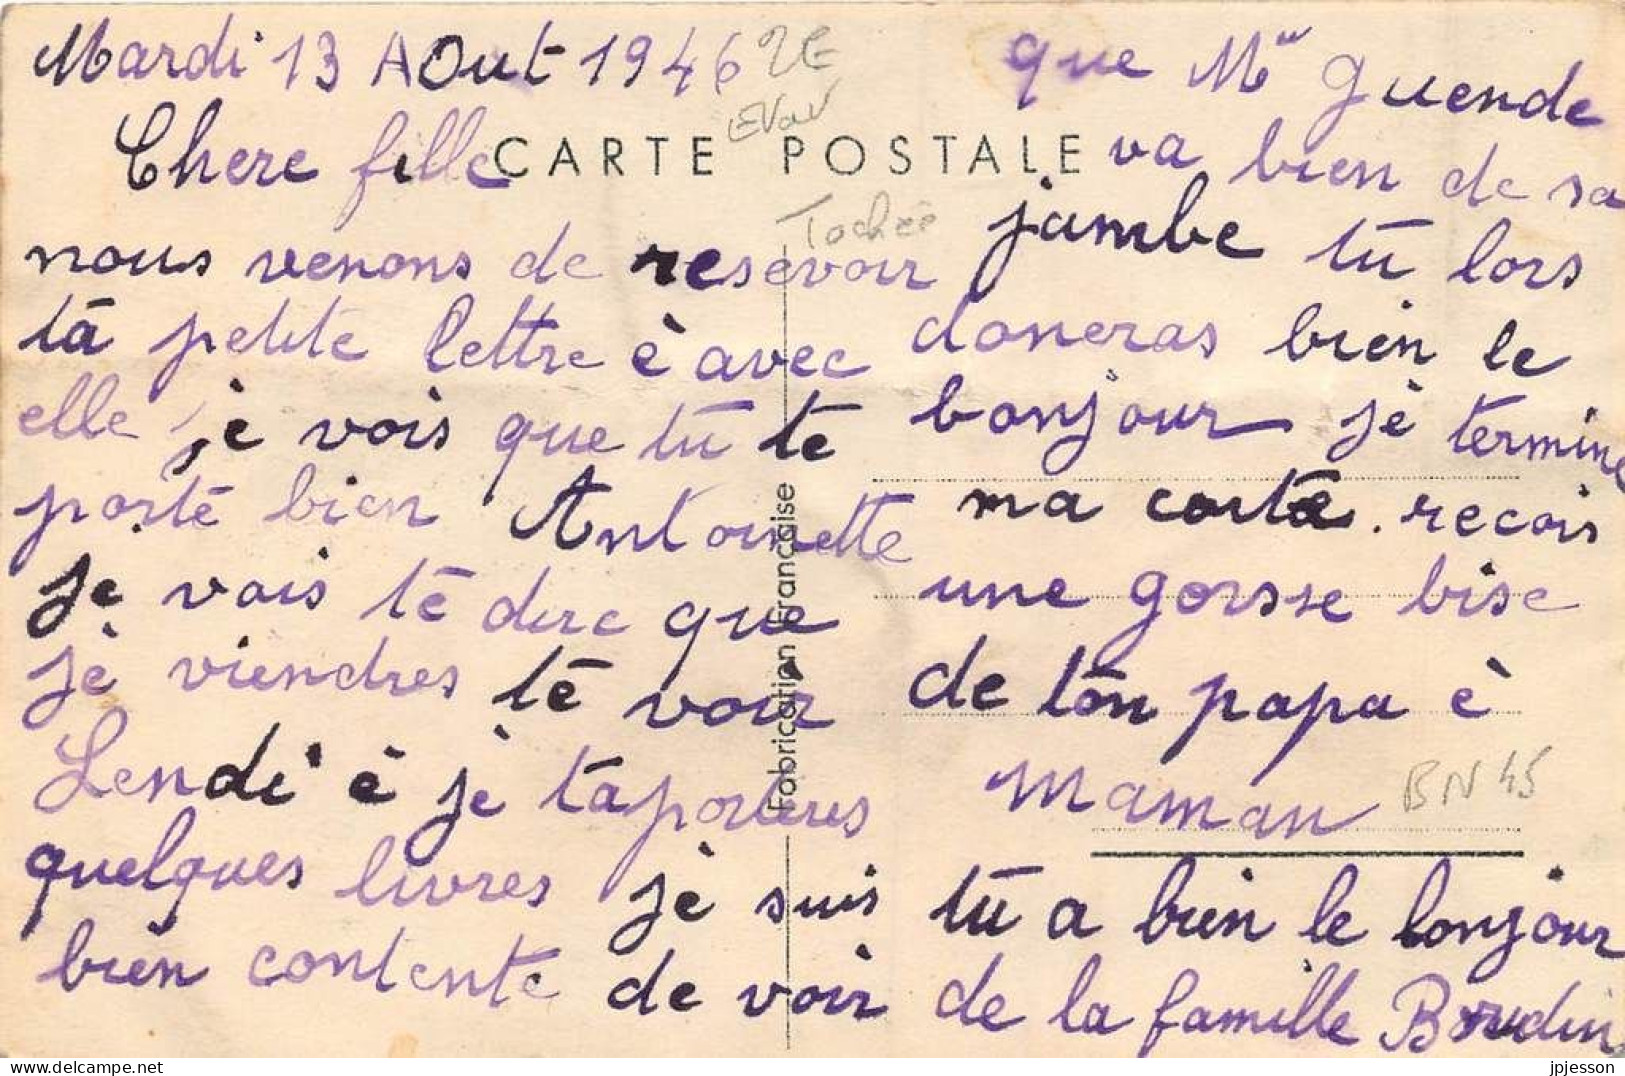 Mardi 13 AOut 1946
Chere fille
nous venons de resevoir
tā petite lettre è avec
elle jè vois que tū te
porte bien Antoinette
Je vais tē dire que
jè viendres tē voir
Lendi è je tāporteres
quelques livres jè suis
bien contente de voir
que Mm Guende
va bien de sa
jambe tū lors
doneras bien le
bonjour jè termine
ma carte. recois
une gorsse bise
de ton papa è
maman
tū a bien le bonjour
de la famille Boudin
CARTE POSTALE
Fabrication Française
2E
Tachée
BN 45
delcampe.net
jpjesson